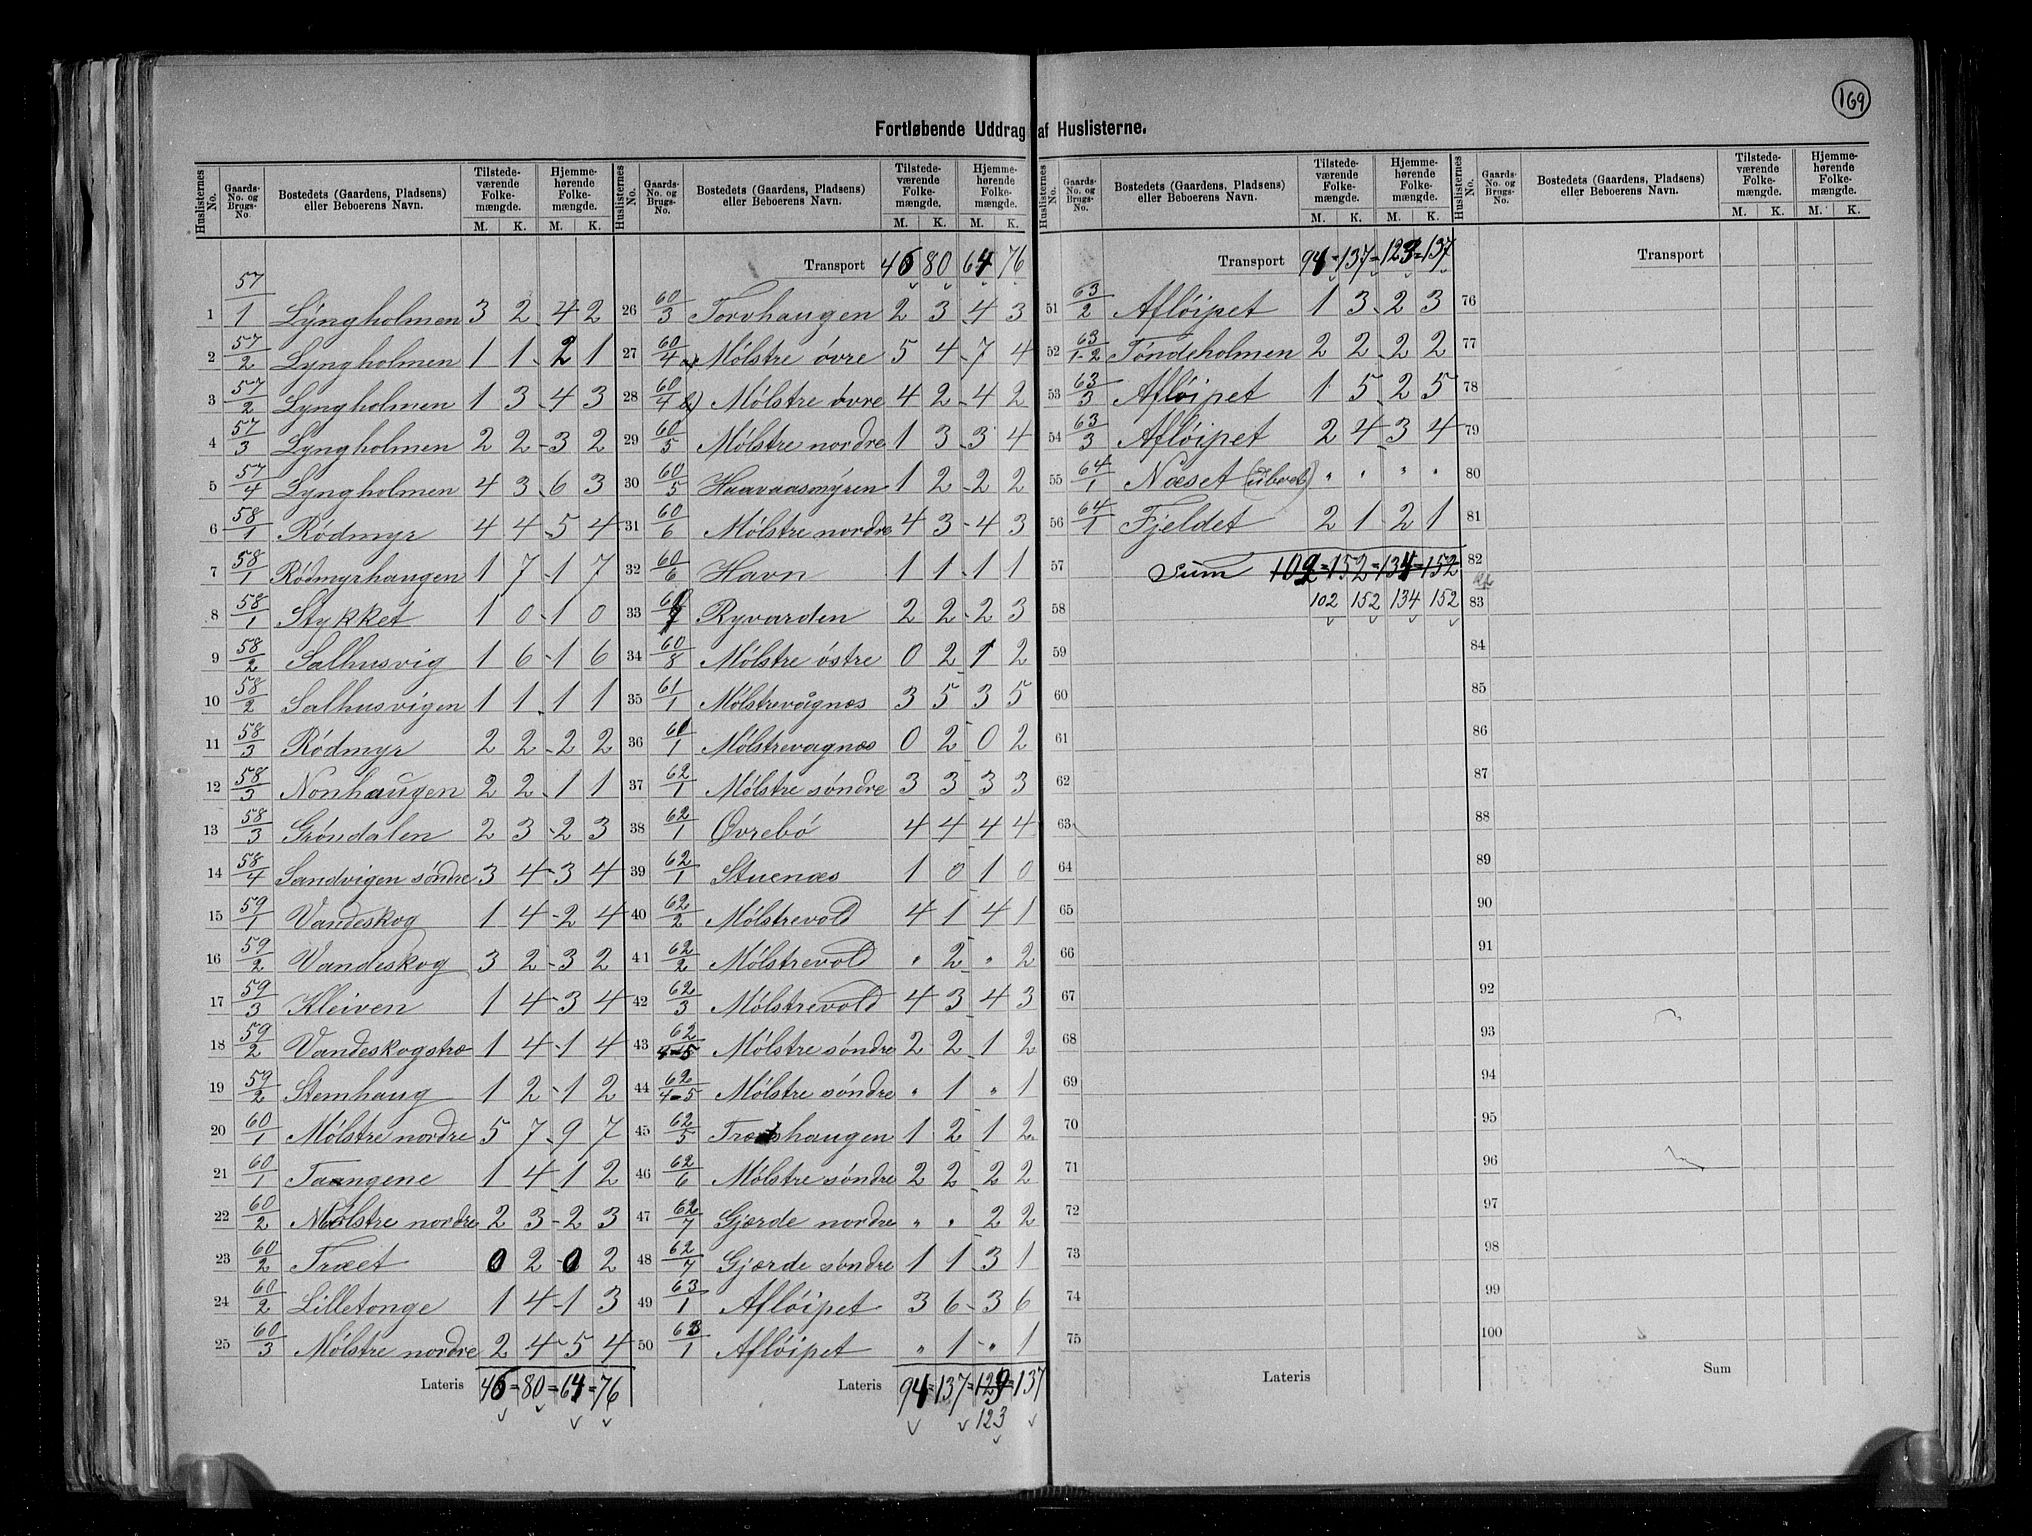 169
Fortløbende Uddrag af Huslisterne.
Huslisternes No. Gaards-No. og Brugs-No. Bostedets (Gaardens, Pladsens) eller Beboerens Navn. Tilstedeværende Folkemængde. M. K. Hjemmehørende Folkemængde. M. K.
1 57/1 Lyngholmen 3 2 4 2
2 57/2 Lyngholmen 1 1 2 1
3 57/2 Lyngholmen 1 3 4 3
4 57/3 Lyngholmen 2 2 3 2
5 57/4 Lyngholmen 4 3 6 3
6 58/1 Rödmyr 4 4 5 4
7 58/1 Rödmyrhaugen 1 7 1 7
8 58/1 Stykket 1 0 1 0
9 58/2 Salhusvig 1 6 1 6
10 58/2 Salhusvigen 1 1 1 1
11 58/3 Rödmyr 2 2 2 2
12 58/3 Nonhaugen 2 2 1 1
13 58/3 Gröndalen 2 3 2 3
14 58/4 Sandvigen söndre 3 4 3 4
15 59/1 Vandeskog 1 4 2 4
16 59/2 Vandeskog 3 2 3 2
17 59/3 Kleiven 1 4 3 4
18 59/2 Vandeskogstræ 1 4 1 4
19 59/2 Stemhaug 1 2 1 2
20 60/1 Mölstre nordre 5 7 9 7
21 60/1 Taangene 1 4 1 2
22 60/2 Mölstre nordre 2 3 2 3
23 60/2 Træet 0 2 0 2
24 60/2 Lilletonge 1 4 1 3
25 60/3 Mölstre nordre 2 4 5 4
Lateris 46 = 80 = 64 = 76
Huslisternes No. Gaards-No. og Brugs-No. Bostedets (Gaardens, Pladsens) eller Beboerens Navn. Tilstedeværende Folkemængde. M. K. Hjemmehørende Folkemængde. M. K.
Transport 46 80 64 76
26 60/3 Torvhaugen 2 3 4 3
27 60/4 Mölstre övre 5 4 7 4
28 60/4 b) Mölstre övre 4 2 4 2
29 60/5 Mölstre nordre 1 3 3 4
30 60/5 Haavaasmyren 1 2 2 2
31 60/6 Mölstre nordre 4 3 4 3
32 60/6 Havn 1 1 1 1
33 60/7 Ryvarden 2 2 2 3
34 60/8 Mölstre östre 0 2 1 2
35 61/1 Mölstrevågnes 3 5 3 5
36 61/1 Mölstrevagnæs 0 2 0 2
37 62/1 Mölstre söndre 3 3 3 3
38 62/1 Øvrebö 4 4 4 4
39 62/1 Stuenæs 1 0 1 0
40 62/2 Mölstrevold 4 1 4 1
41 62/2 Mölstrevold " 2 " 2
42 62/3 Mölstrevold 4 3 4 3
43 62/4-5 Mölstre söndre 2 2 1 2
44 62/4-5 Mölstre söndre " 1 " 1
45 62/5 Træshaugen 1 2 1 2
46 62/6 Mölstre söndre 2 2 2 2
47 62/7 Gjærde nordre " " 2 2
48 62/7 Gjærde söndre 1 1 3 1
49 63/1 Aflöipet 3 6 3 6
50 63/1 Aflöipet " 1 " 1
Lateris 94 = 137 = 129 = 137
123
Huslisternes No. Gaards-No. og Brugs-No. Bostedets (Gaardens, Pladsens) eller Beboerens Navn. Tilstedeværende Folkemængde. M. K. Hjemmehørende Folkemængde. M. K.
Transport 94 = 137 = 123 = 137
51 63/2 Aflöipet 1 3 2 3
52 63/1-2 Töndeholmen 2 2 2 2
53 63/3 Aflöipet 1 5 2 5
54 63/3 Aflöipet 2 4 3 4
55 64/1 Næset (Ubeb) " " " "
56 64/1 Fjeldet 2 1 2 1
57 Sum 102 = 152 = 134 = 152
58 102 152 134 152
59
60
61
62
63
64
65
66
67
68
69
70
71
72
73
74
75
Lateris
Huslisternes No. Gaards-No. og Brugs-No. Bostedets (Gaardens, Pladsens) eller Beboerens Navn. Tilstedeværende Folkemængde. M. K. Hjemmehørende Folkemængde. M. K.
Transport
76
77
78
79
80
81
82
83
84
85
86
87
88
89
90
91
92
93
94
95
96
97
98
99
100
Sum